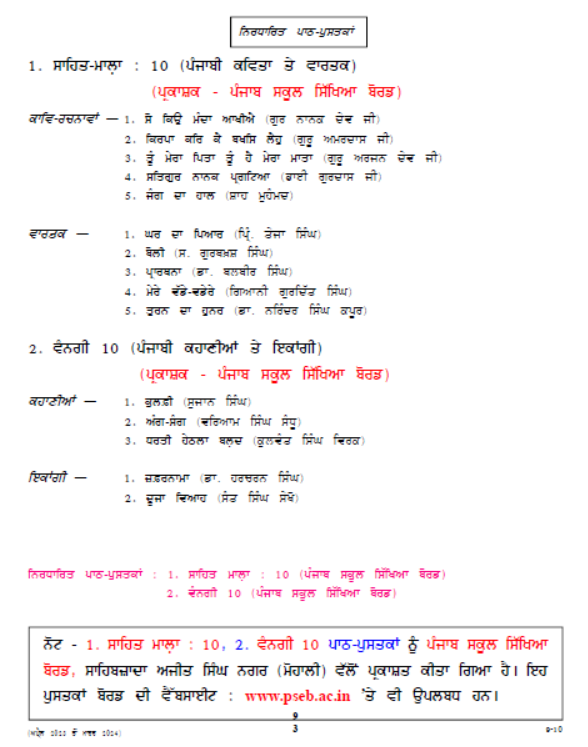 ਨਿਰਧਾਰਿਤ ਪਾਠ-ਪੁਸਤਕਾਂ
1. ਸਾਹਿਤ-ਮਾਲਾ : 10 (ਪੰਜਾਬੀ ਕਵਿਤਾ ਤੇ ਵਾਰਤਕ)
(ਪ੍ਰਕਾਸ਼ਕ - ਪੰਜਾਬ ਸਕੂਲ ਸਿੱਖਿਆ ਬੋਰਡ)
ਕਾਵਿ-ਰਚਨਾਵਾਂ — 1. ਸੋ ਕਿਉ ਮੰਦਾ ਆਖੀਐ (ਗੁਰੂ ਨਾਨਕ ਦੇਵ ਜੀ)
2. ਕਿਰਪਾ ਕਰਿ ਕੈ ਬਖਸਿ ਲੈਹੁ (ਗੁਰੂ ਅਮਰਦਾਸ ਜੀ)
3. ਤੂੰ ਮੇਰਾ ਪਿਤਾ ਤੂੰ ਹੈ ਮੇਰਾ ਮਾਤਾ (ਗੁਰੂ ਅਰਜਨ ਦੇਵ ਜੀ)
4. ਸਤਿਗੁਰ ਨਾਨਕ ਪ੍ਰਗਟਿਆ (ਭਾਈ ਗੁਰਦਾਸ ਜੀ)
5. ਜੰਗ ਦਾ ਹਾਲ (ਸ਼ਾਹ ਮੁਹੰਮਦ)
ਵਾਰਤਕ — 1. ਘਰ ਦਾ ਪਿਆਰ (ਪ੍ਰਿੰ. ਤੇਜਾ ਸਿੰਘ)
2. ਬੋਲੀ (ਸ. ਗੁਰਬਖ਼ਸ਼ ਸਿੰਘ)
3. ਪ੍ਰਾਰਥਨਾ (ਡਾ. ਬਲਬੀਰ ਸਿੰਘ)
4. ਮੇਰੇ ਵੱਡੇ-ਵਡੇਰੇ (ਗਿਆਨੀ ਗੁਰਦਿੱਤ ਸਿੰਘ)
5. ਤੁਰਨ ਦਾ ਹੁਨਰ (ਡਾ. ਨਰਿੰਦਰ ਸਿੰਘ ਕਪੂਰ)
2. ਵੰਨਗੀ 10 (ਪੰਜਾਬੀ ਕਹਾਣੀਆਂ ਤੇ ਇਕਾਂਗੀ)
(ਪ੍ਰਕਾਸ਼ਕ - ਪੰਜਾਬ ਸਕੂਲ ਸਿੱਖਿਆ ਬੋਰਡ)
ਕਹਾਣੀਆਂ — 1. ਕੁਲਫ਼ੀ (ਸੁਜਾਨ ਸਿੰਘ)
2. ਅੰਗ-ਸੰਗ (ਵਰਿਆਮ ਸਿੰਘ ਸੰਧੂ)
3. ਧਰਤੀ ਹੇਠਲਾ ਬਲ੍ਹਦ (ਕੁਲਵੰਤ ਸਿੰਘ ਵਿਰਕ)
ਇਕਾਂਗੀ — 1. ਜ਼ਫ਼ਰਨਾਮਾ (ਡਾ. ਹਰਚਰਨ ਸਿੰਘ)
2. ਦੂਜਾ ਵਿਆਹ (ਸੰਤ ਸਿੰਘ ਸੇਖੋਂ)
ਨਿਰਧਾਰਿਤ ਪਾਠ-ਪੁਸਤਕਾਂ : 1. ਸਾਹਿਤ ਮਾਲਾ : 10 (ਪੰਜਾਬ ਸਕੂਲ ਸਿੱਖਿਆ ਬੋਰਡ)
2. ਵੰਨਗੀ 10 (ਪੰਜਾਬ ਸਕੂਲ ਸਿੱਖਿਆ ਬੋਰਡ)
ਨੋਟ - 1. ਸਾਹਿਤ ਮਾਲਾ : 10, 2. ਵੰਨਗੀ 10 ਪਾਠ-ਪੁਸਤਕਾਂ ਨੂੰ ਪੰਜਾਬ ਸਕੂਲ ਸਿੱਖਿਆ
ਬੋਰਡ, ਸਾਹਿਬਜ਼ਾਦਾ ਅਜੀਤ ਸਿੰਘ ਨਗਰ (ਮੋਹਾਲੀ) ਵੱਲੋਂ ਪ੍ਰਕਾਸ਼ਤ ਕੀਤਾ ਗਿਆ ਹੈ। ਇਹ
ਪੁਸਤਕਾਂ ਬੋਰਡ ਦੀ ਵੈੱਬਸਾਈਟ : www.pseb.ac.in 'ਤੇ ਵੀ ਉਪਲਬਧ ਹਨ।
9
3
9-10